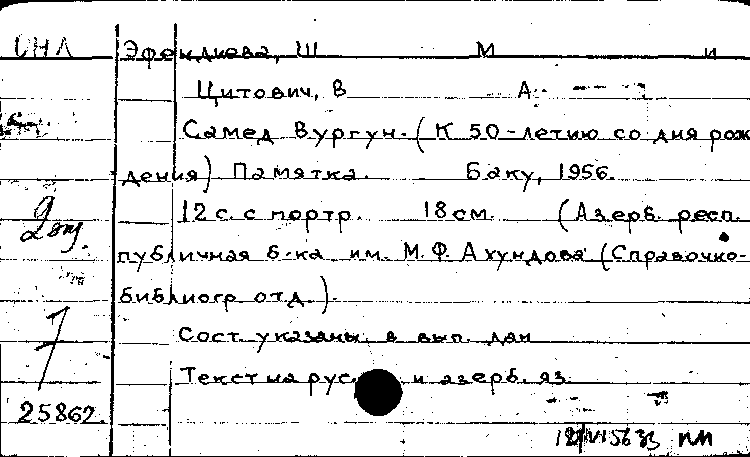 Эфендиева, Ш М и
Цитович, В А.
Самед Вургун. (К 50-летию со дня рож
дения) Памятка. Баку, 1956.
12 с. с портр. 18 см. (Азерб. респ.
публичная б-ка им. М.Ф. Ахундова (Справочно-
библиогр. отд.).
Сост. указаны в вып. дан
Текст на рус. и азерб. яз.
7
25862.